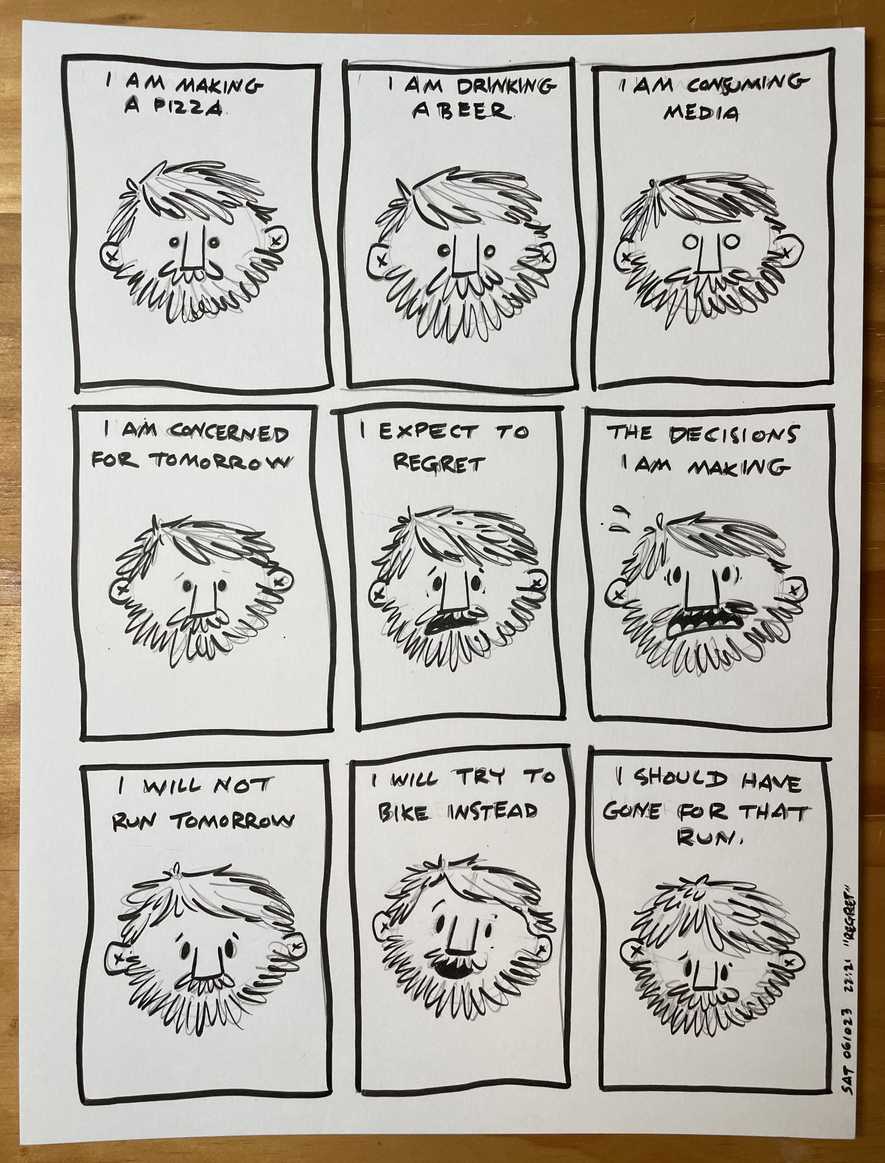 I AM MAKING
A PIZZA.
I AM DRINKING
A BEER.
I AM CONSUMING
MEDIA
I AM CONCERNED
FOR TOMORROW
I EXPECT TO
REGRET
THE DECISIONS
I AM MAKING
I WILL NOT
RUN TOMORROW
I WILL TRY TO
BIKE INSTEAD
I SHOULD HAVE
GONE FOR THAT
RUN.
SAT 061023 22:21 "REGRET"